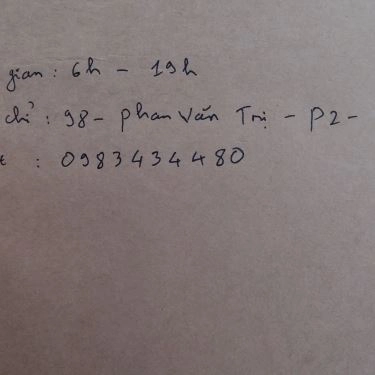 gian : 6h - 19h
chỉ : 98 - Phan Văn Trị - P2 -
t : 0983434480